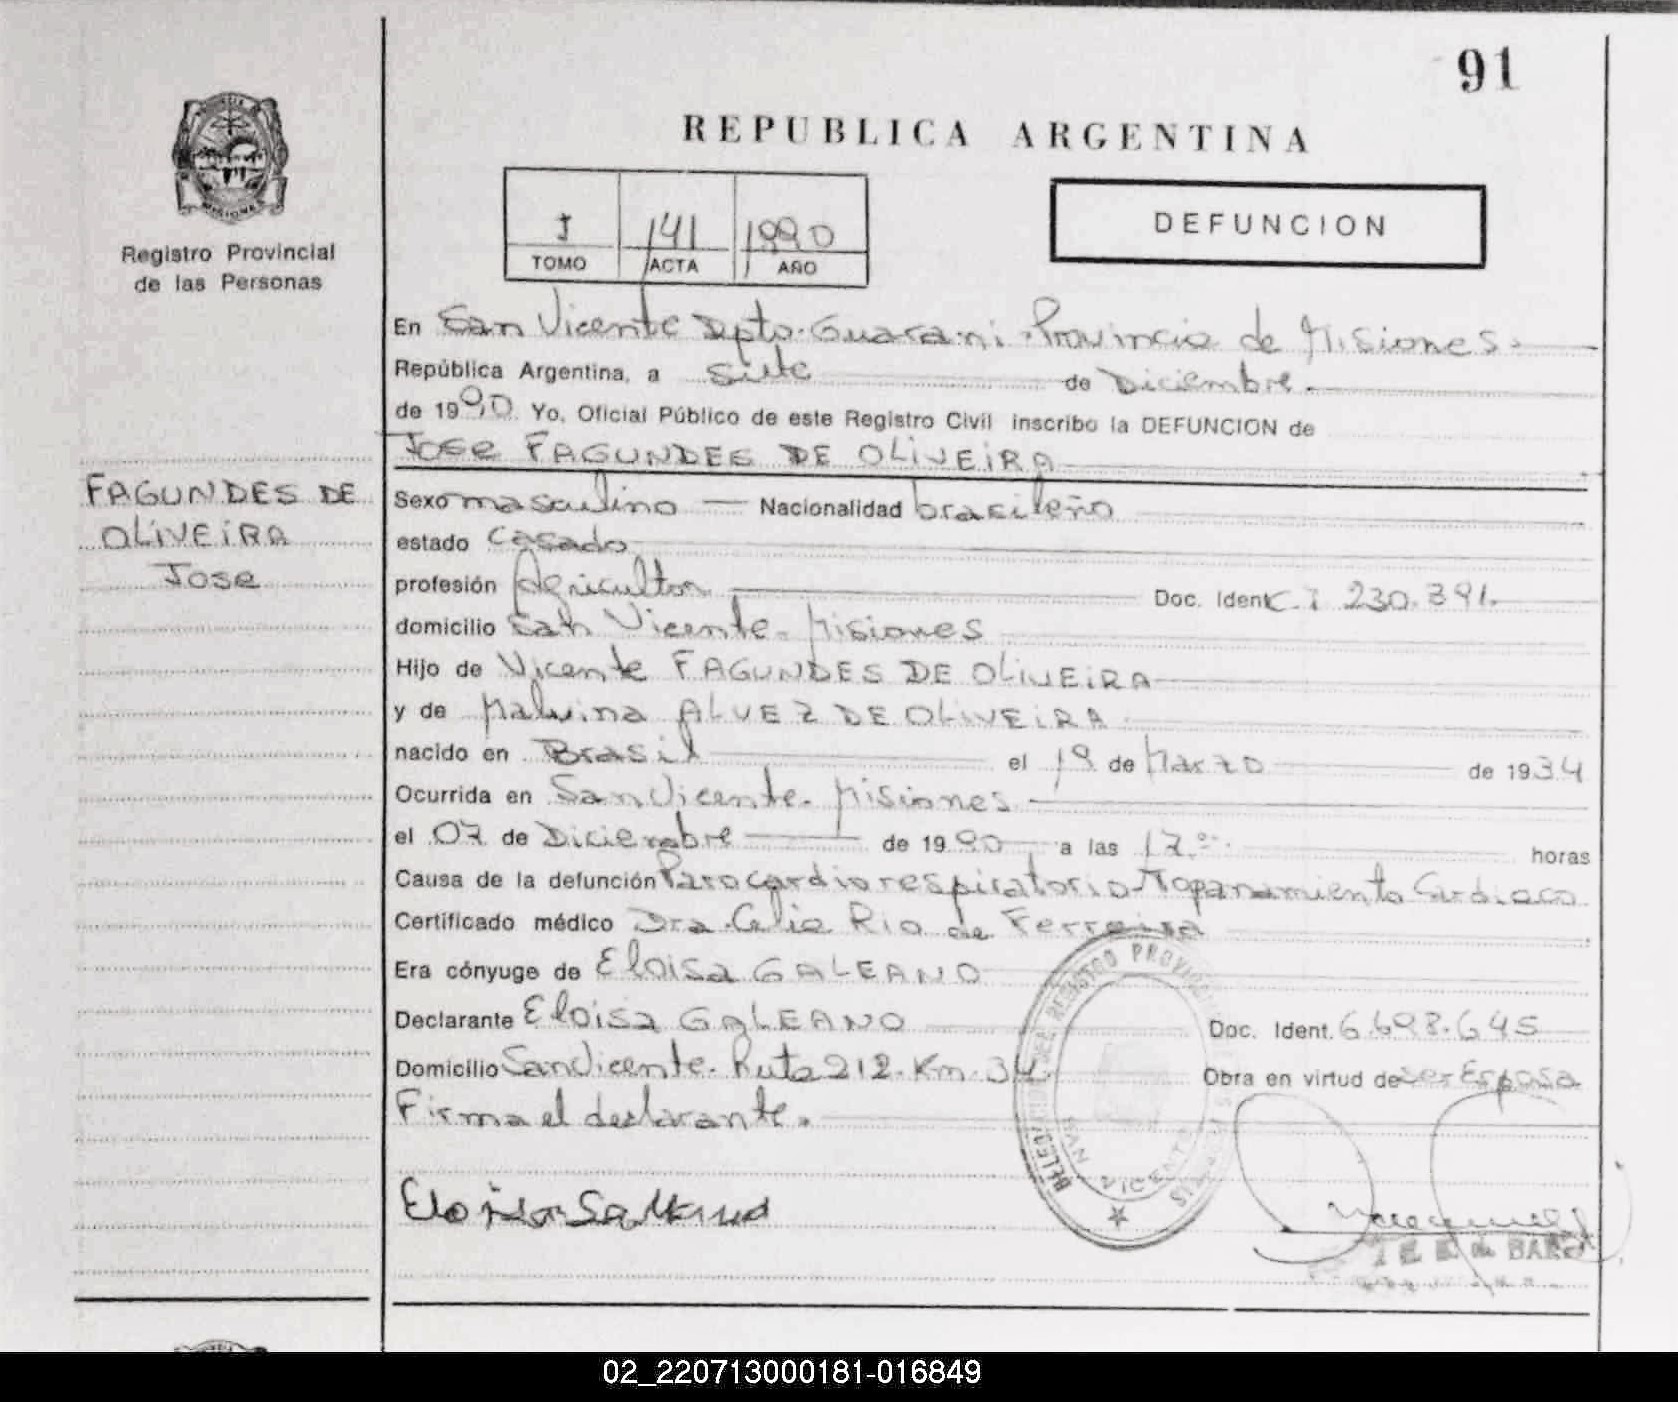 91
REPUBLICA ARGENTINA
Registro Provincial
de las Personas
I 141 1990
TOMO ACTA AÑO
DEFUNCION
En San Vicente Dpto. Guarani. Provincia de Misiones.
República Argentina, a siete de Diciembre.
de 1990 Yo, Oficial Público de este Registro Civil inscribo la DEFUNCION de
Jose FAGUNDES DE OLIVEIRA
FAGUNDES DE
OLIVEIRA
Jose
Sexo masculino Nacionalidad brasileño
estado Casado
profesión Agricultor Doc. Ident C.I 230.391.
domicilio San Vicente. Misiones
Hijo de Vicente FAGUNDES DE OLIVEIRA
y de Malvina ALVEZ DE OLIVEIRA
nacido en Brasil el 19 de Marzo de 1934
Ocurrida en San Vicente. Misiones
el 07 de Diciembre de 1990 a las 17.°° horas
Causa de la defunción Paro cardiorespiratorio - Cardiaco
Certificado médico Dra. Celia Rio de Ferreira
Era cónyuge de Eloisa GALEANO
Declarante Eloisa GALEANO Doc. Ident. 6.698.645
Domicilio San Vicente. Ruta 212. Km. 34. Obra en virtud de ser Esposa
Firma el declarante.
DELEGACION DEL REGISTRO PROVINCIAL
SAN VICENTE
DE BAREA
02_220713000181-016849